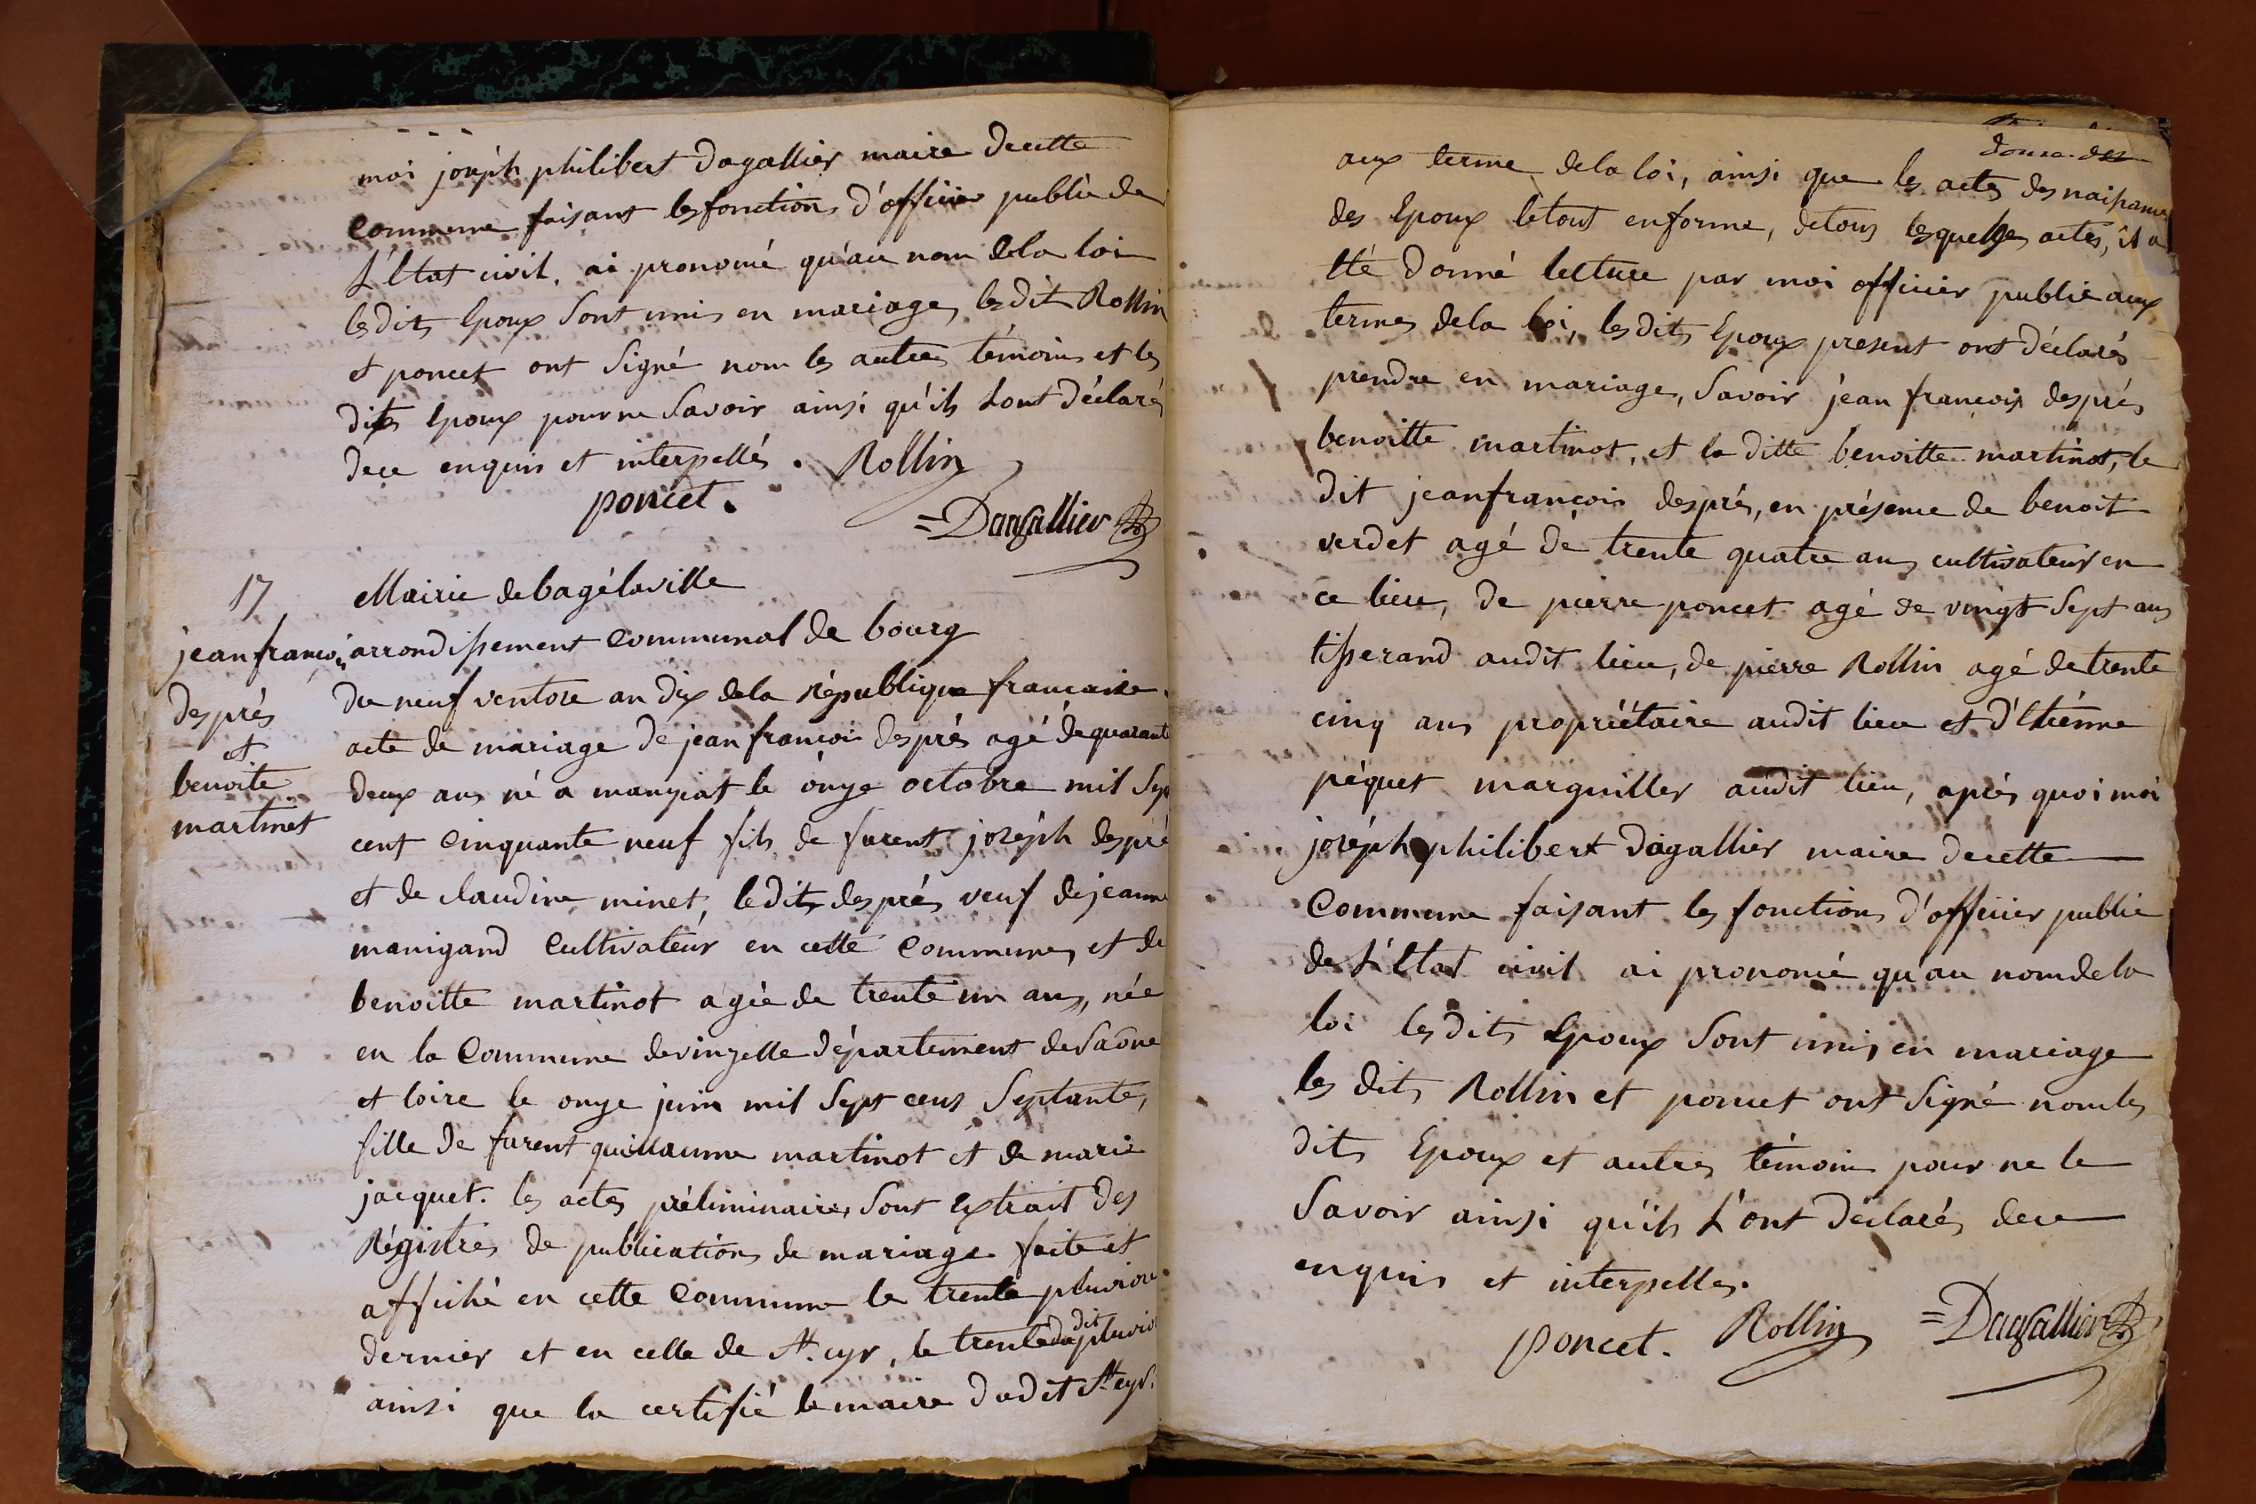 moi joséph philibert dagallier maire decette
commune faisant les fonctions d'officier public de
L'Etat civil, ai prononcé qu'au nom dela loi
les dits Epoux Sont unis en mariage, les dits Rollin
et poncet ont Signé nom les autres témoins et les
dits Epoux pour ne Savoir ainsi qu'ils Lont déclarés
dece enquis et interpellés. Rollin
poncet.
=Dagallier
17 Mairie de bagélaville
jean françois arrondissement communal de bourg
du neuf ventose an dix dela république francaise.
després acte de mariage de jean françois després agé de quarante
et
benoite deux ans né a manziat le onze octobre mil Sept
martinet
cent cinquante neuf fils de furent joséph després
et de claudine minet, ledits després veuf de jeanne
manigand cultivateur en cette commune, et de
benoitte martinot agée de trente un ans, née
en la commune devinzelle département deSaône
et loire le onze juin mil Sept cens Septante,
fille de furent guillaume martinot et de marie
jacquet. les actes préliminaires Sont Extrait des
Régistres de publications de mariage faite et
affiché en cette commune le trente pluviose
dernier et en celle de St. cyr, le trente dudit pluviose
ainsi que la certifié le maire dudit St cyr.
aux terme dela loi, ainsi que les actes des naissance
des Epoux letout enforme, detous lesquelles actes, il a
été donné lecture par moi officier public aux
termes dela loi, les dits Epoux present ont déclarés
prendre en mariage, Savoir jéan françois després
benoitte martinot, et la ditte benoitte martinot, le
dit jeanfrançois després, en présence de benoit
verdet agé de trente quatre ans cultivateur en
ce lieu, de pierre poncet agé de vingt Sept ans
tisserand audit lieu, de pierre Rollin agé detrente
cinq ans propriétaire audit lieu et d'Etiénne
péquet marguiller audit lieu, aprés quoi moi
joséph philibert dagallier maire decette
Commune faisant les fonctions d'officier public
de L'Etat civil ai prononcé qu'au nomdela
loi les dits Epoux Sont unis en mariage
les dits Rollin et poncet ont Signé nomles
dits Epoux et autres témoins pour ne le
Savoir ainsi qu'ils L'ont déclarés dece
enquis et interpelles.
poncet. Rollin =Dagallier